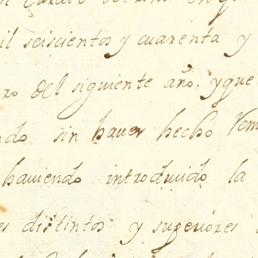 il seiscientos y cuarenta y
ro del siguiente año. y que
ndo sin haver hecho
haviendo introducido la
es distintos y superiores